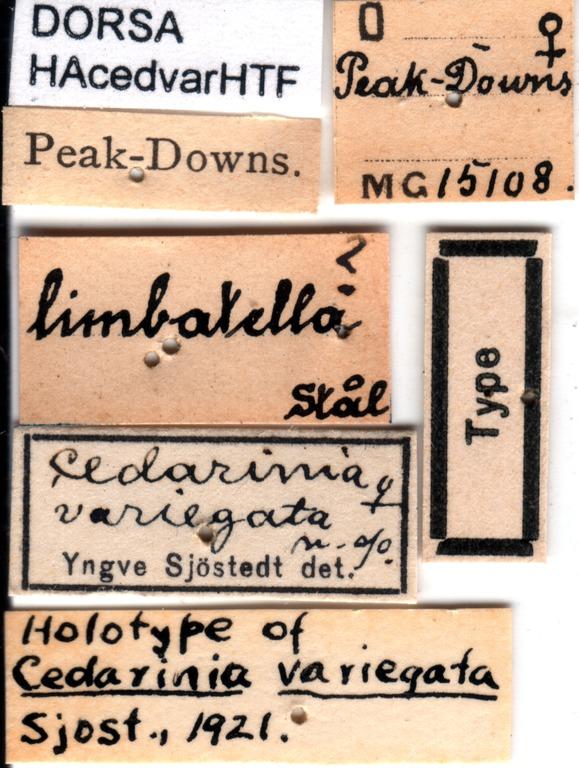 DORSA
HAcedvarHTF
Peak-Downs.
O ♀
Peak-Downs
MG15108.
limbatella?
Stål
Type
Cedarinia ♀
variegata
n. sp.
Yngve Sjöstedt det.
Holotype of
Cedarinia variegata
Sjost., 1921.